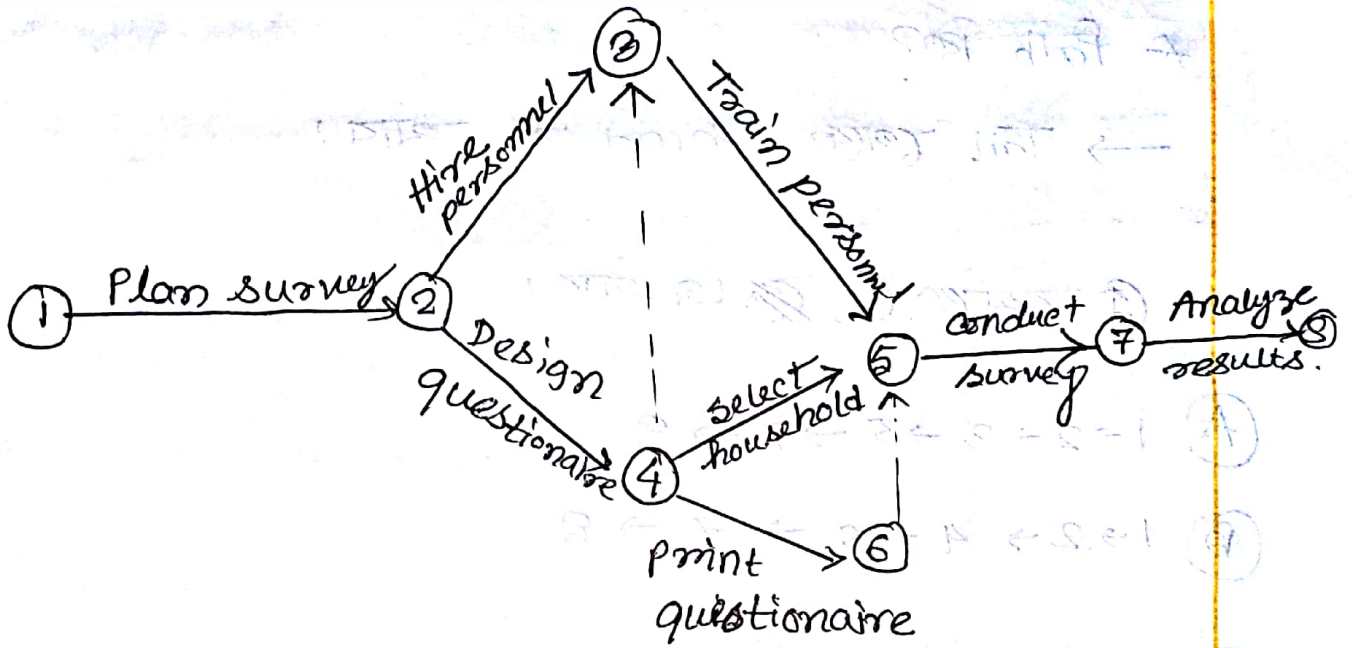 3
Hire
personnel
Train personnel
1
Plan survey
2
Design
questionaire
4
select
household
5
conduct
survey
7
Analyze
results.
8
6
print
questionaire